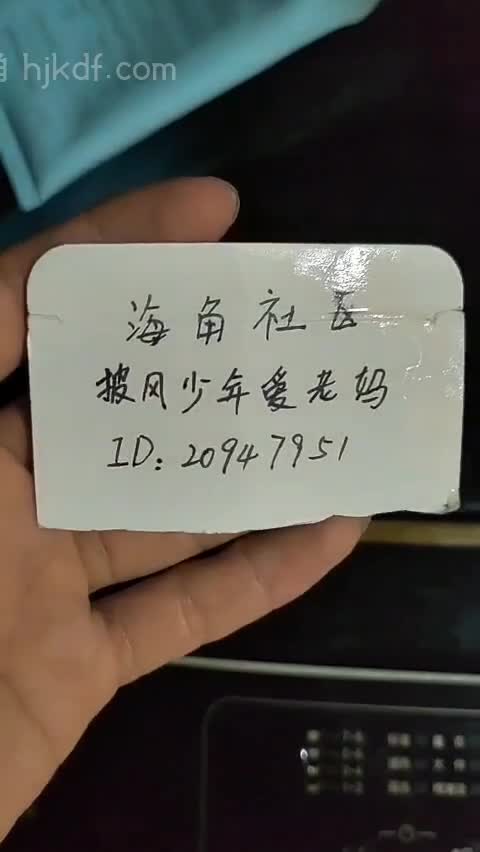 hjkdf.com
海角社区
披风少年爱老妈
ID: 20947951